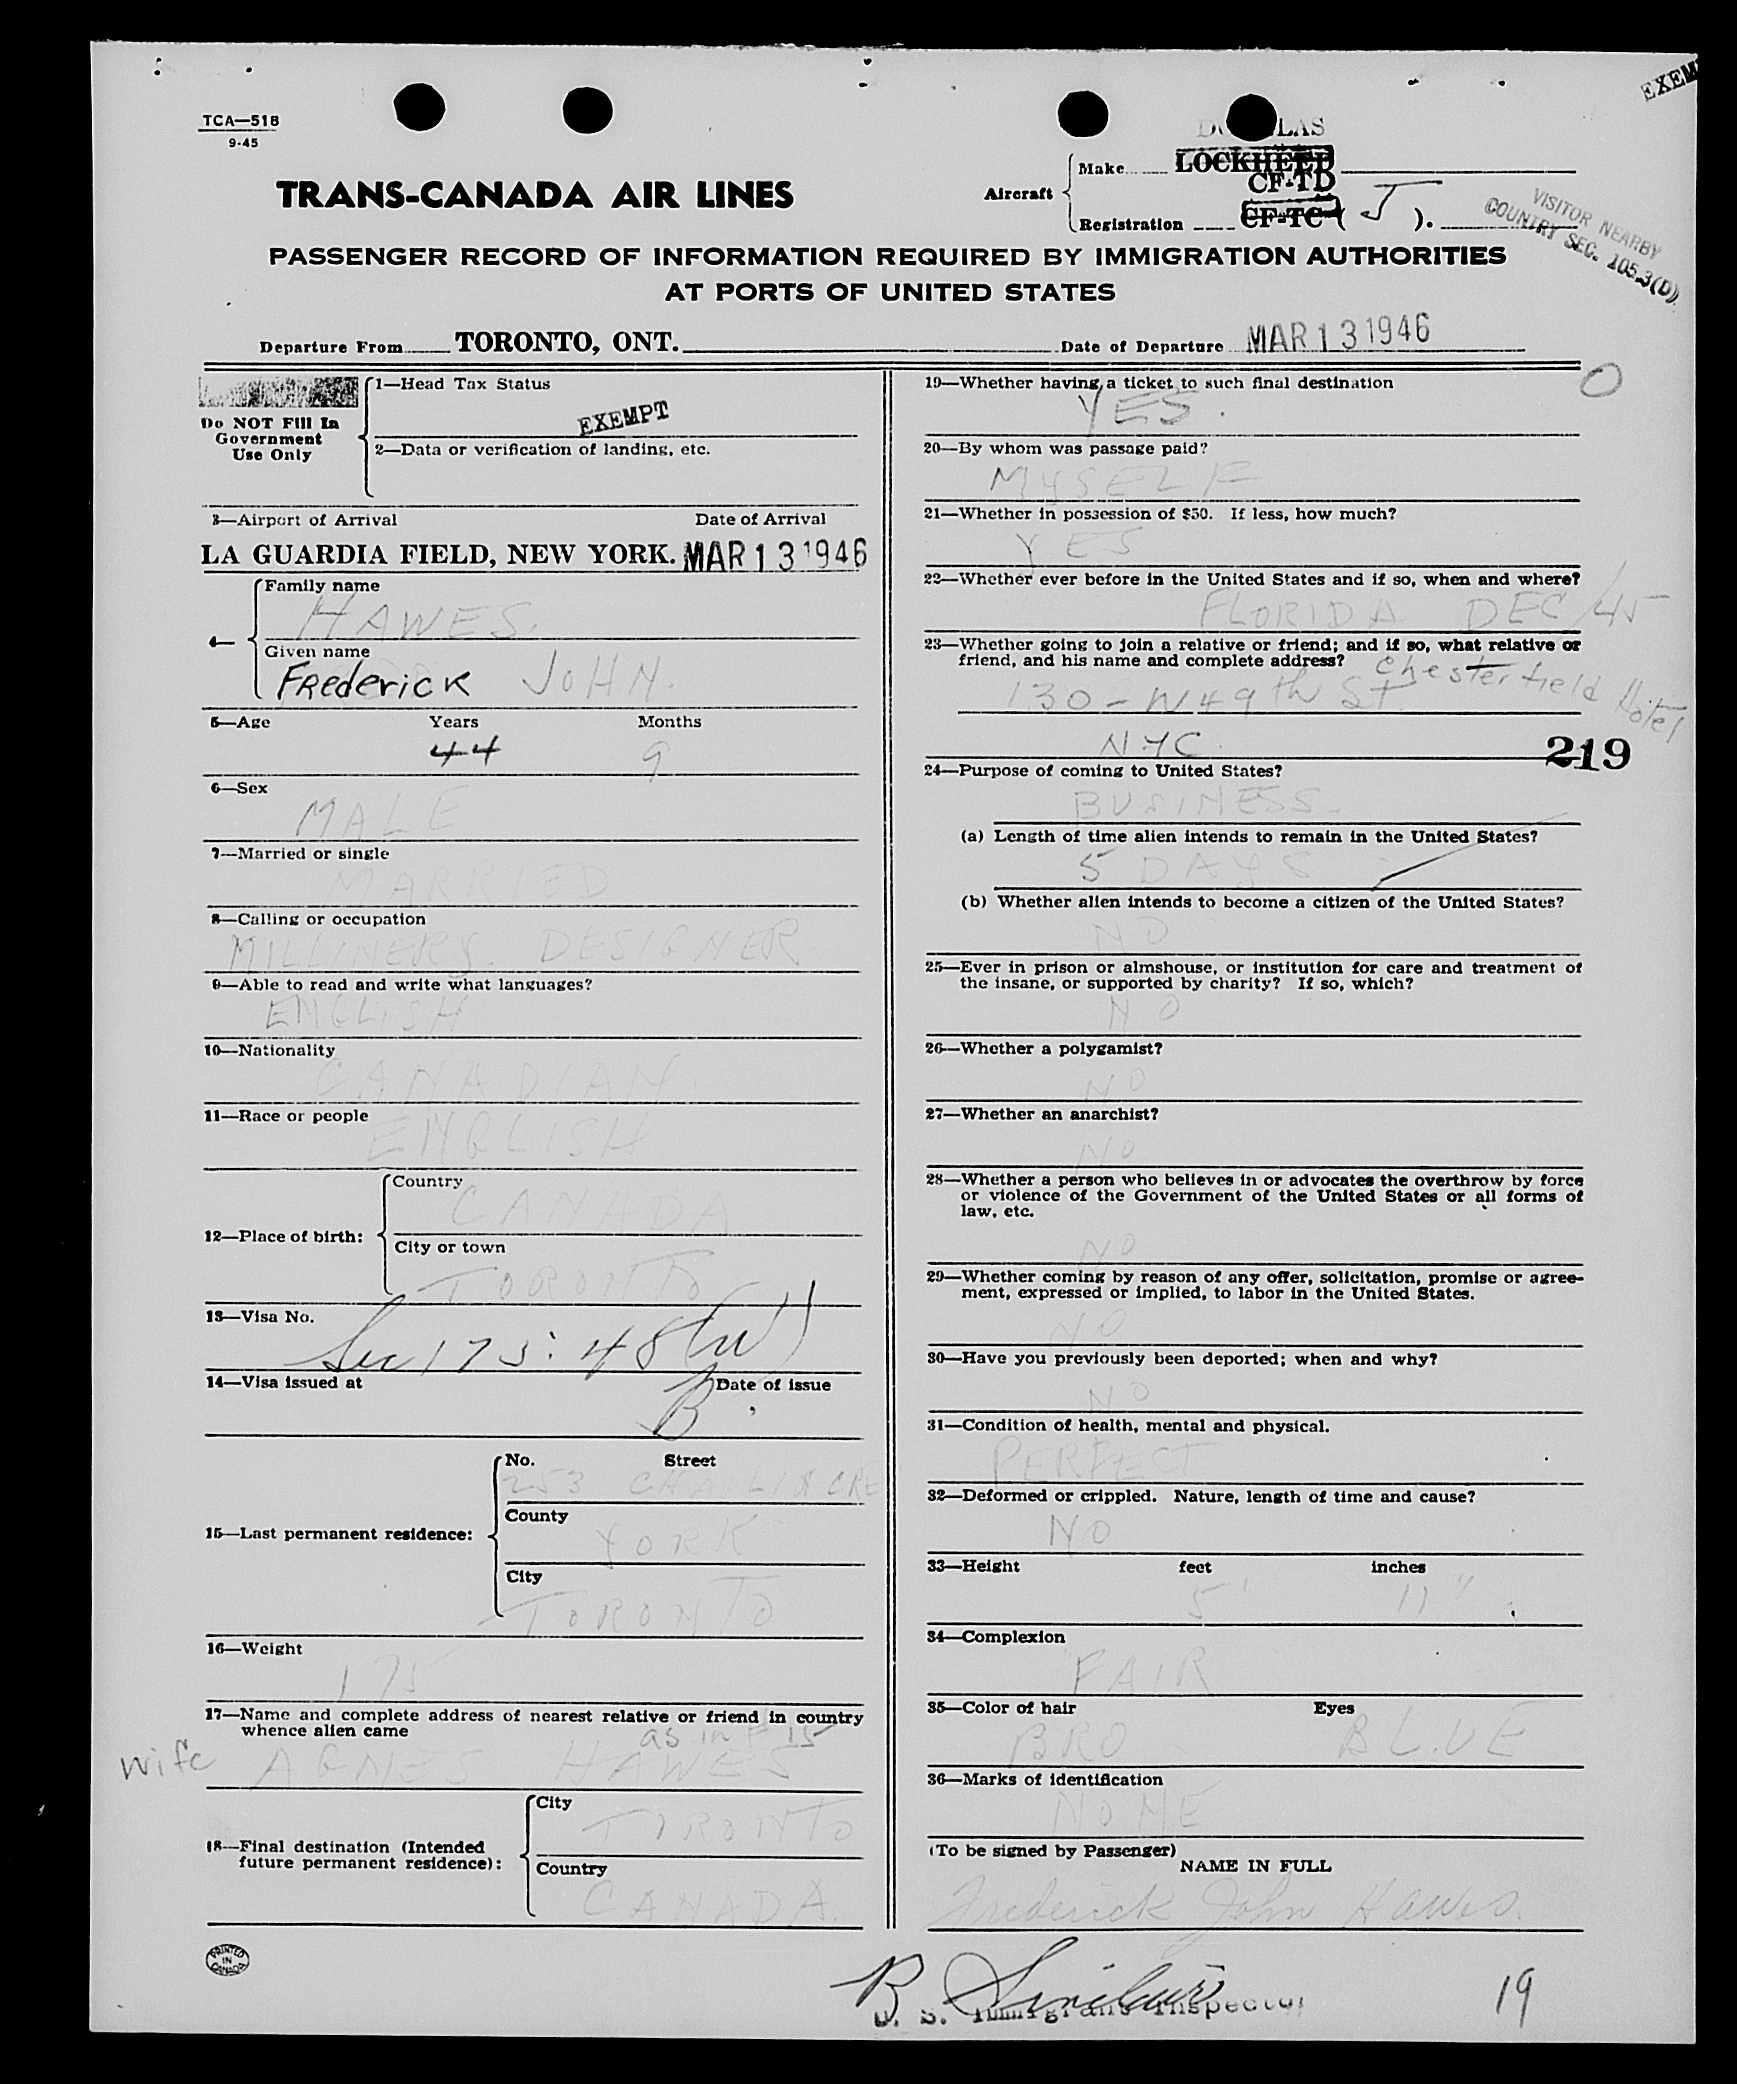 EXEM
TCA—518
9-45
DOUGLAS
Aircraft
Make LOCKHEED
CF-TD
Registration CF-TC-( J ).
VISITOR NEARBY
COUNTRY SEC. 105.3(D)
TRANS-CANADA AIR LINES
PASSENGER RECORD OF INFORMATION REQUIRED BY IMMIGRATION AUTHORITIES
AT PORTS OF UNITED STATES
Departure From TORONTO, ONT. Date of Departure MAR 13 1946
Do NOT Fill In
Government
Use Only
1—Head Tax Status
EXEMPT
2—Data or verification of landing, etc.
3—Airport of Arrival Date of Arrival
LA GUARDIA FIELD, NEW YORK. MAR 13 1946
4—
Family name
HAWES.
Given name
FRederick JOHN.
5—Age Years Months
44 9
6—Sex
MALE
7—Married or single
MARRIED
8—Calling or occupation
MILLINERY. DESIGNER
9—Able to read and write what languages?
ENGLISH
10—Nationality
CANADIAN.
11—Race or people
ENGLISH
12—Place of birth:
Country
CANADA
City or town
TORONTO
13—Visa No.
Sec 175:48
14—Visa issued at Date of issue
B
15—Last permanent residence:
No. Street
253 CRE
County
YORK
City
TORONTO
16—Weight
175
17—Name and complete address of nearest relative or friend in country
whence alien came
as in # 15
wife AGNES HAWES
18—Final destination (Intended
future permanent residence):
City
TORONTO
Country
CANADA.
PRINTED
IN
CANADA
19—Whether having a ticket to such final destination
YES.
O
20—By whom was passage paid?
MYSELF
21—Whether in possession of $50. If less, how much?
YES
22—Whether ever before in the United States and if so, when and where?
FLORIDA DEC/45
23—Whether going to join a relative or friend; and if so, what relative or
friend, and his name and complete address?
Chesterfield Hotel
130 - W 49th St.
NYC.
219
24—Purpose of coming to United States?
BUSINESS.
(a) Length of time alien intends to remain in the United States?
5 DAYS
(b) Whether alien intends to become a citizen of the United States?
NO
25—Ever in prison or almshouse, or institution for care and treatment of
the insane, or supported by charity? If so, which?
NO
26—Whether a polygamist?
NO
27—Whether an anarchist?
NO
28—Whether a person who believes in or advocates the overthrow by force
or violence of the Government of the United States or all forms of
law, etc.
NO
29—Whether coming by reason of any offer, solicitation, promise or agree-
ment, expressed or implied, to labor in the United States.
NO
30—Have you previously been deported; when and why?
NO
31—Condition of health, mental and physical.
PERFECT
32—Deformed or crippled. Nature, length of time and cause?
NO
33—Height feet inches
5' 11"
34—Complexion
FAIR
35—Color of hair Eyes
BRO BLUE
36—Marks of identification
NONE
(To be signed by Passenger)
NAME IN FULL
Frederick John Hawes.
B Sinclair
U. S. Immigrant Inspector
19